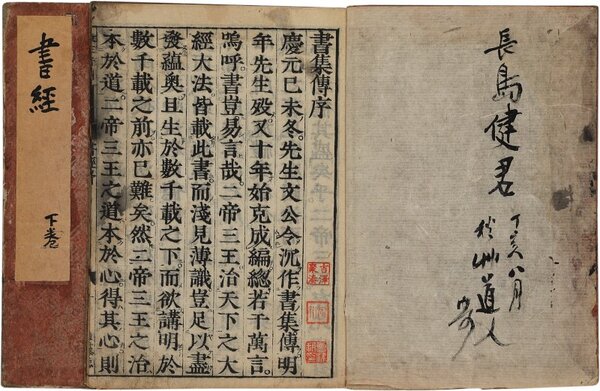 長島健君
丁亥八月
道人
書集傳序
慶元已未冬。先生文公令沉作書集傳明
年先生歿。又十年始克成編總若干萬言。
嗚呼書豈易言哉。二帝三王治天下之大
經大法皆載此書而淺見薄識豈足以盡
發蘊奧且生於數千載之下而欲講明於
數千載之前亦已難矣然二帝三王之治
本於道二帝三王之道本於心得其心則
書經
下卷